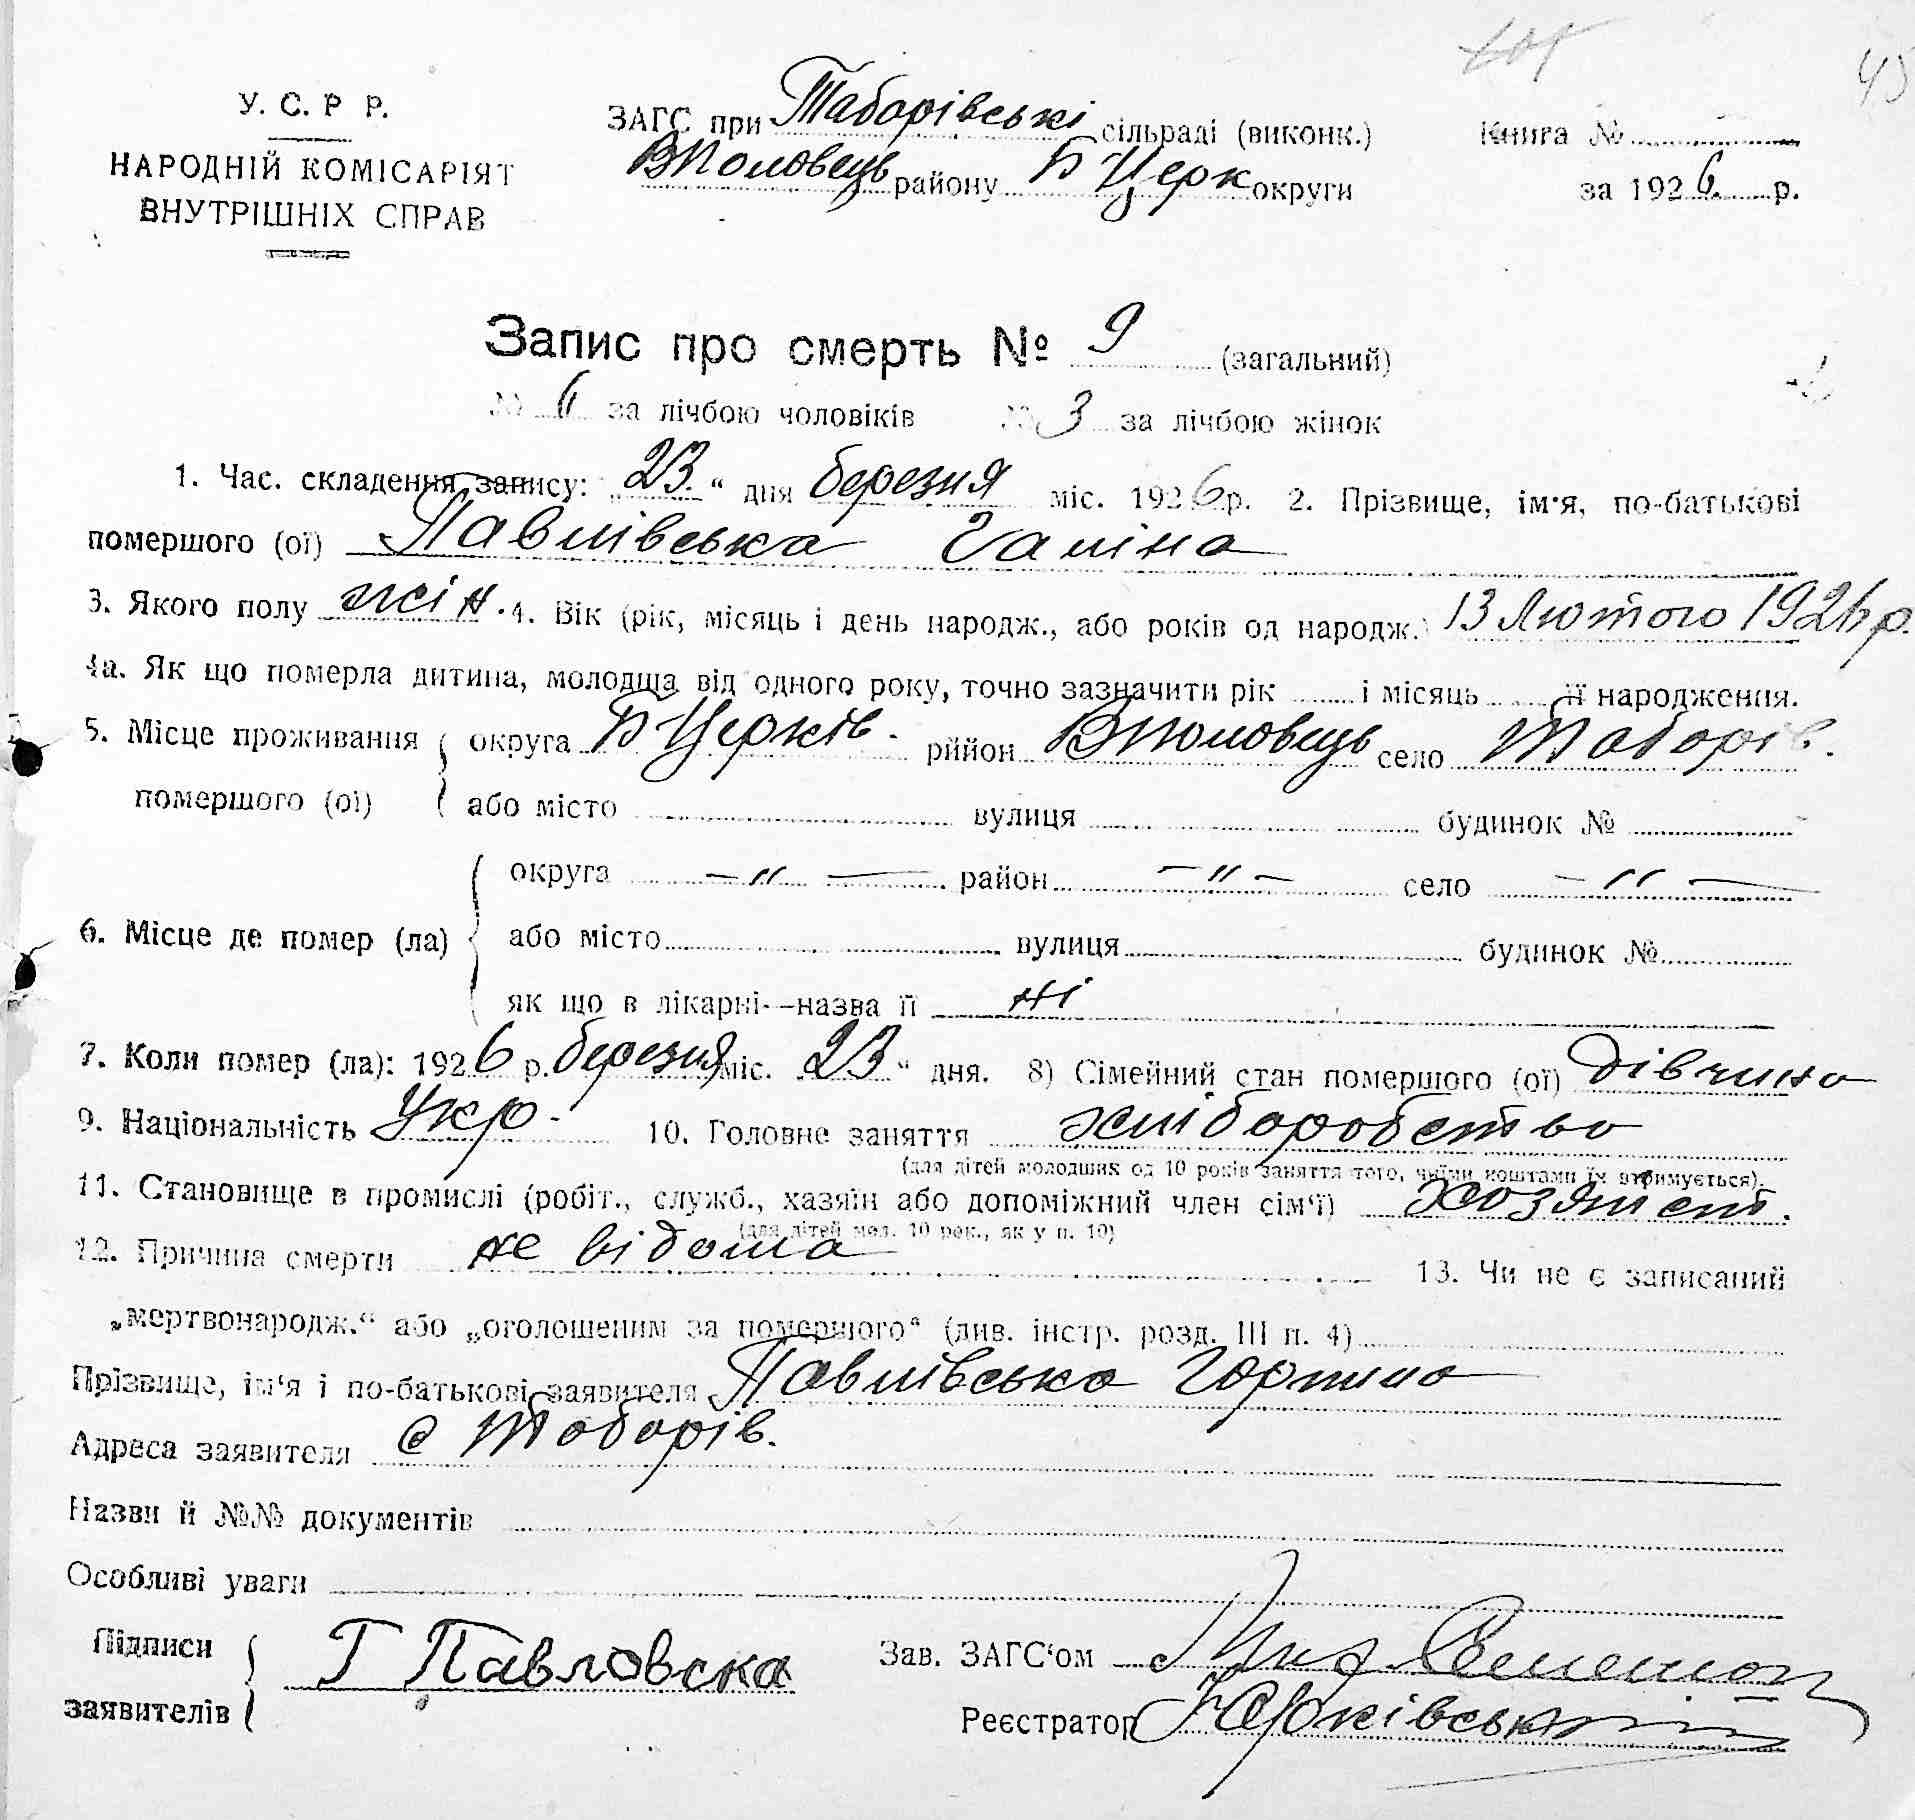 45
У. С. Р Р.
НАРОДНІЙ КОМІСАРІЯТ
ВНУТРІШНІХ СПРАВ
ЗАГС при Таборівські сільраді (виконк.)
ВПоловець району Б Церк округи
Книга №
за 1926 р.
Запис про смерть № 9 (загальний)
№ 6 за лічбою чоловіків № 3 за лічбою жінок
1. Час. складення запису: „23“ дня березня міс. 1926 р. 2. Прізвище, ім'я, по-батькові
помершого (ої) Павлівська Галіна
3. Якого полу жін. 4. Вік (рік, місяць і день народж., або років од народж.) 13 Лютого 1926 р.
4а. Як що померла дитина, молодща від одного року, точно зазначити рік і місяць її народження.
5. Місце проживання помершого (ої) округа Б Церків. рийон ВПоловець село Таборів.
або місто вулиця будинок №
6. Місце де помер (ла) округа —"— район —"— село —"—
або місто вулиця будинок №
як що в лікарні—назва її ні
7. Коли помер (ла): 1926 р. березня міс. „23“ дня. 8) Сімейний стан помершого (ої) дівчина
9. Національність Укр. 10. Головне заняття хліборобство
(для дітей молодших од 10 років заняття того, чиїми коштами їх втримується).
11. Становище в промислі (робіт., служб., хазяїн або допоміжний член сім'ї) хозяйст.
(для дітей мол. 10 рок., як у п. 10)
12. Причина смерти не відома 13. Чи не є записаний
„мертвонародж.“ або „оголошеним за помершого“ (див. інстр. розд. III п. 4)
Прізвище, ім'я і по-батькові заявителя Павлівська Горпина
Адреса заявителя с Таборів.
Назви й №№ документів
Особливі уваги
Підписи заявителів Г Павловска
Зав. ЗАГС'ом
Реєстратор